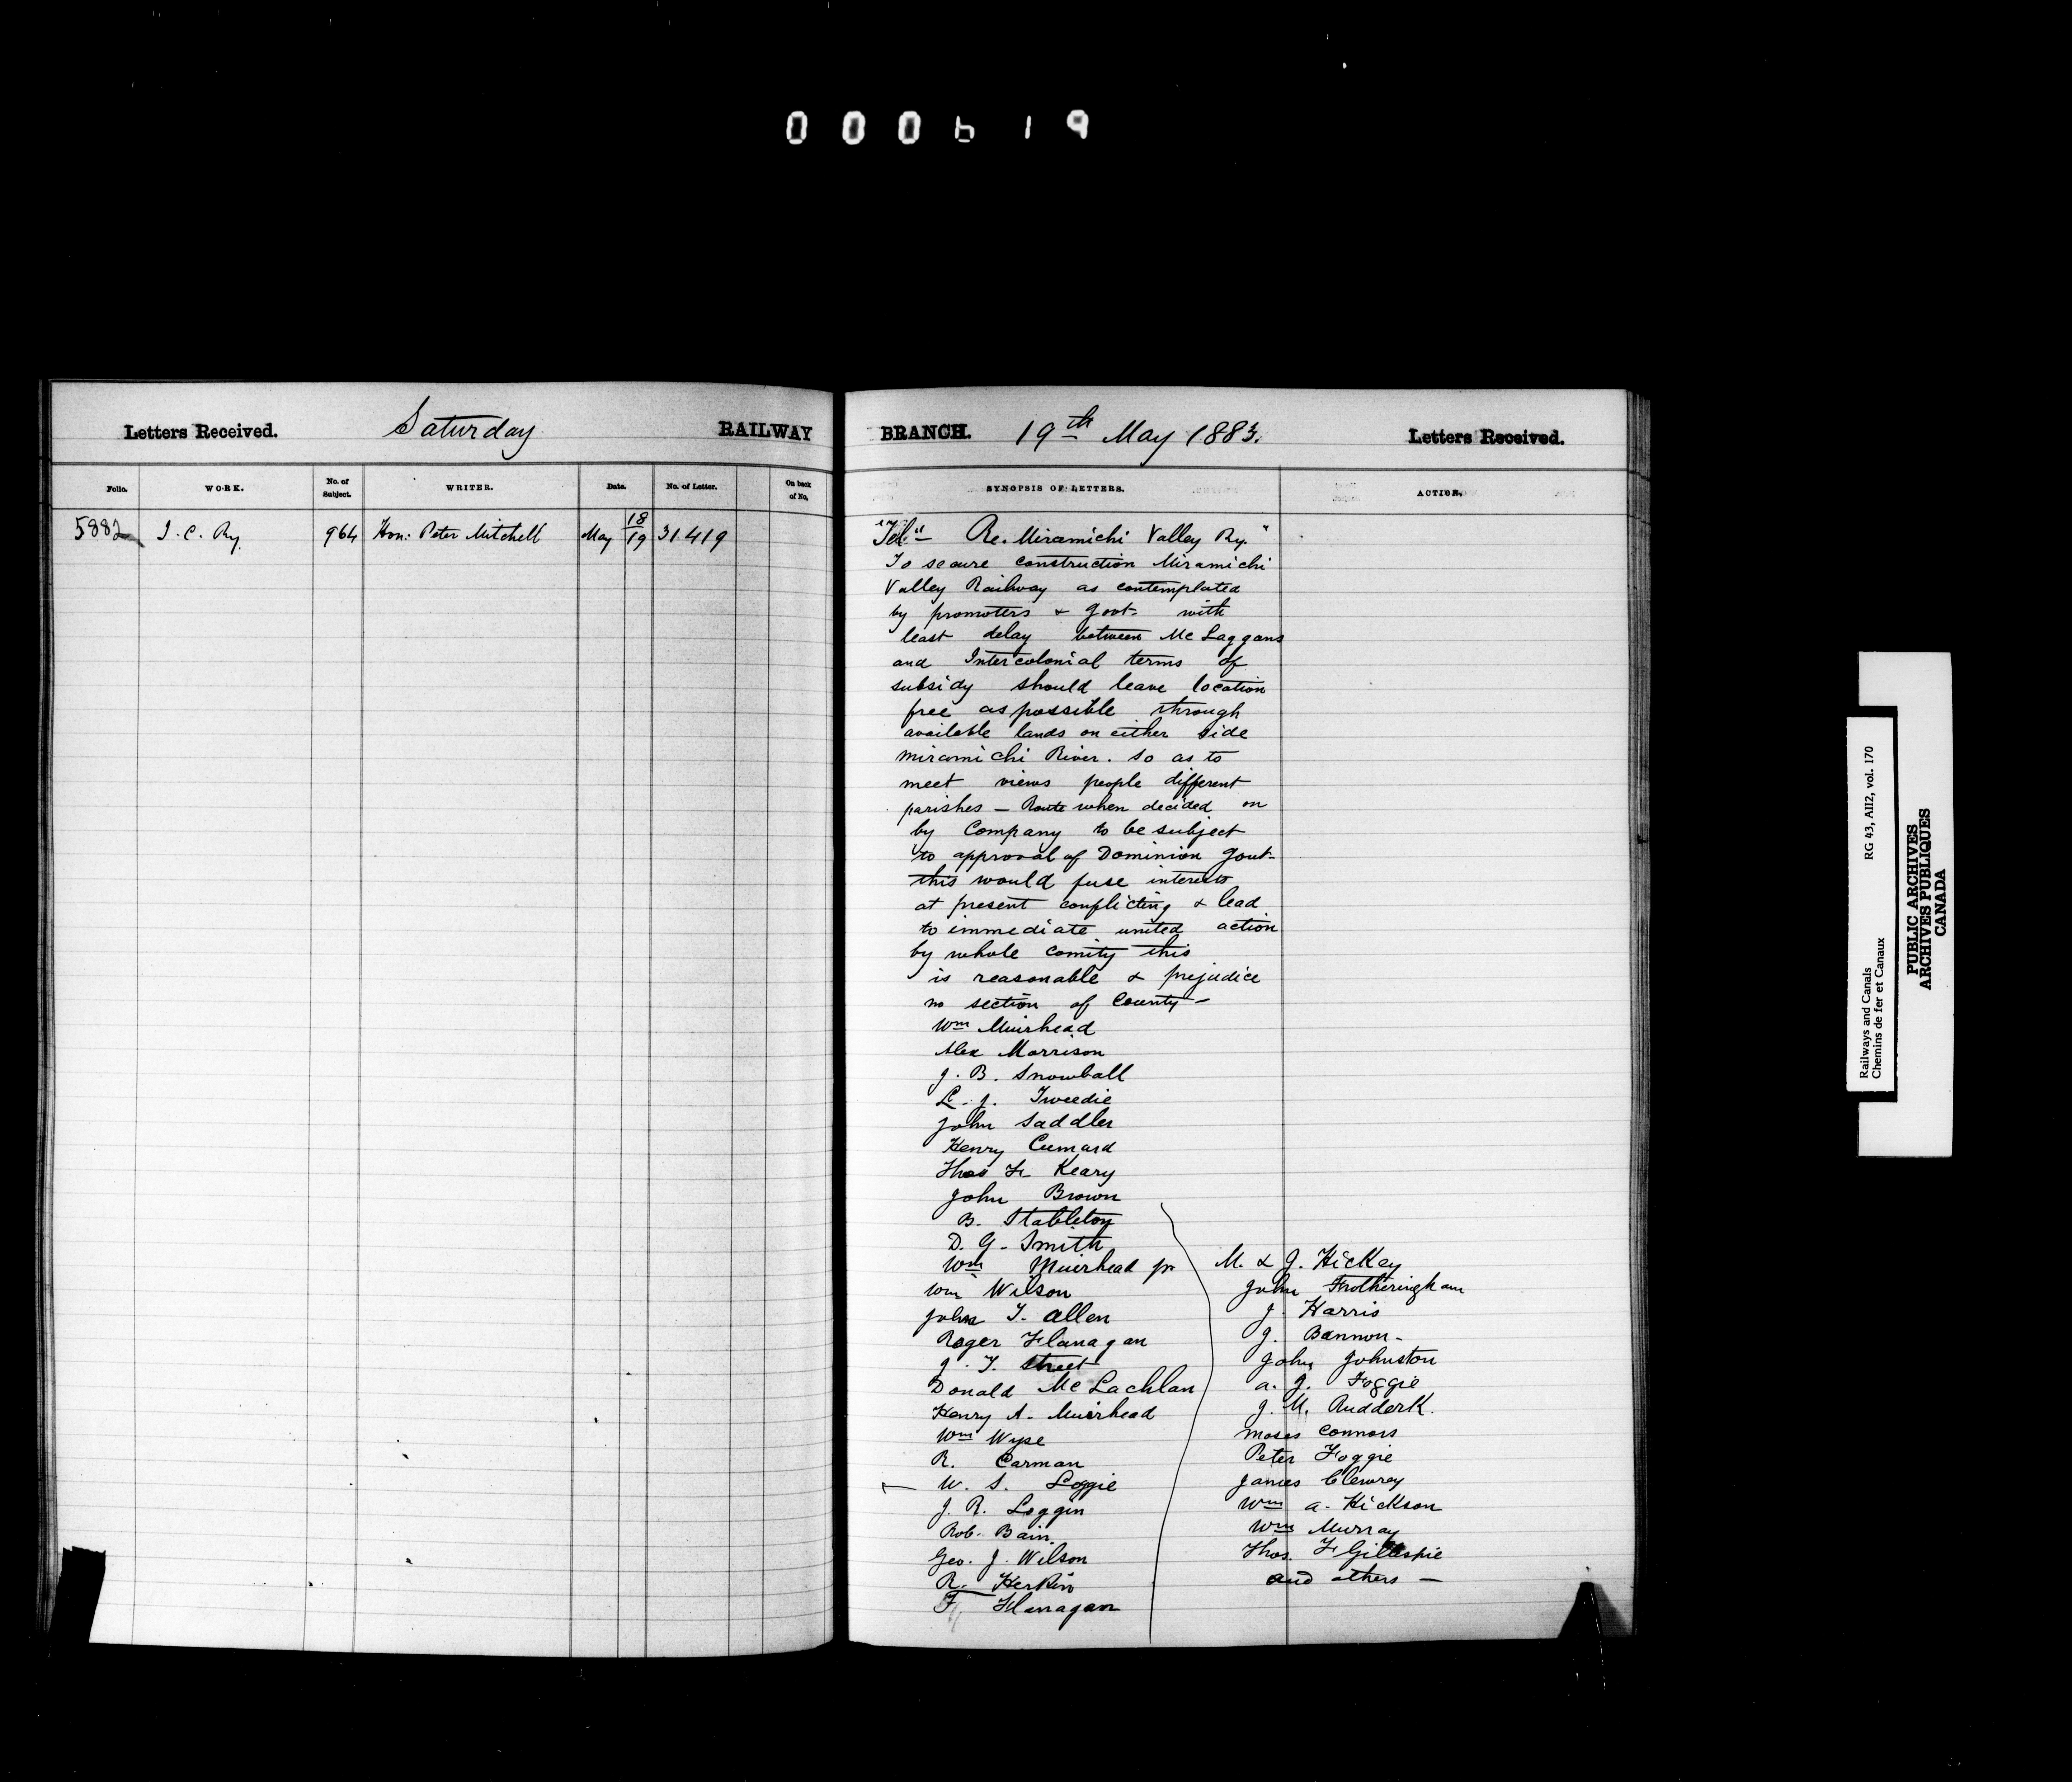 000619
Letters Received. Saturday RAILWAY
Folio. WORK. No. of Subject. WRITER. Date. No. of Letter. On back of No.
5882 I. C. Ry. 964 Hon: Peter Mitchell May 18/19 31419
BRANCH. 19th May 1883. Letters Received.
SYNOPSIS OF LETTERS. ACTION.
Tel:— Re. Miramichi Valley Ry."
To secure construction Miramichi
Valley Railway as contemplated
by promoters & Govt. with
least delay between McLaggans
and Intercolonial terms of
subsidy should leave location
free as possible through
available lands on either side
Miramichi River. so as to
meet views people different
parishes — Route when decided on
by Company to be subject
to approval of Dominion Govt-
this would fuse interests
at present conflicting & lead
to immediate united action
by whole comity this
is reasonable & prejudice
no section of County —
Wm Muirhead
Alex Morrison
J. B. Snowball
L. J. Tweedie
John Saddler
Henry Cunard
Thos F. Keary
John Brown
B. Stableton
D. G. Smith
Wm Muirhead jr
Wm Wilson
John T. Allen
Roger Flanagan
J. T. Street
Donald McLachlan
Henry A. Muirhead
Wm Wyse
R. Carman
W. S. Loggie
J. R. Loggin
Rob. Bain
Geo. J. Wilson
R. Herkin
F. Flanagan
M. & J. Hickey
John Frotheringham
J. Harris
J. Bannon-
John Johnston
A. J. Foggie
J. M. Rudderk.
Moses Connors
Peter Foggie
James Clewrey
Wm A. Hickson
Wm Murray
Thos. F Gillespie
and others —
Railways and Canals RG 43, AII2, vol. 170
Chemins de fer et Canaux
PUBLIC ARCHIVES
ARCHIVES PUBLIQUES
CANADA